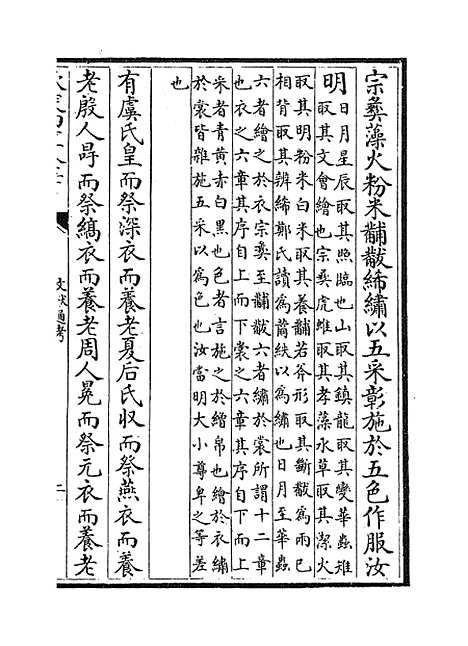 宗彝藻火粉米黼黻絺繡以五采彰施於五色作服汝
明日月星辰取其照臨也山取其鎮龍取其變華蟲雉
取其文會繪也宗彝虎蜼取其孝藻水草取其潔火
取其明粉米白米取其養黼若斧形取其斷黻為兩己
相背取其辨絺鄭氏讀為黹紩以為繡也日月至華蟲
六者繪之於衣宗彝至黼黻六者繡於裳所謂十二章
也衣之六章其序自上而下裳之六章其序自下而上
采者青黄赤白黑也色者言施之於繒帛也繪於衣繡
於裳皆雜施五采以為色也汝當明大小尊卑之等差
也
有虞氏皇而祭深衣而養老夏后氏収而祭燕衣而養
老殷人冔而祭縞衣而養老周人冕而祭元衣而養老
文獻通考
二